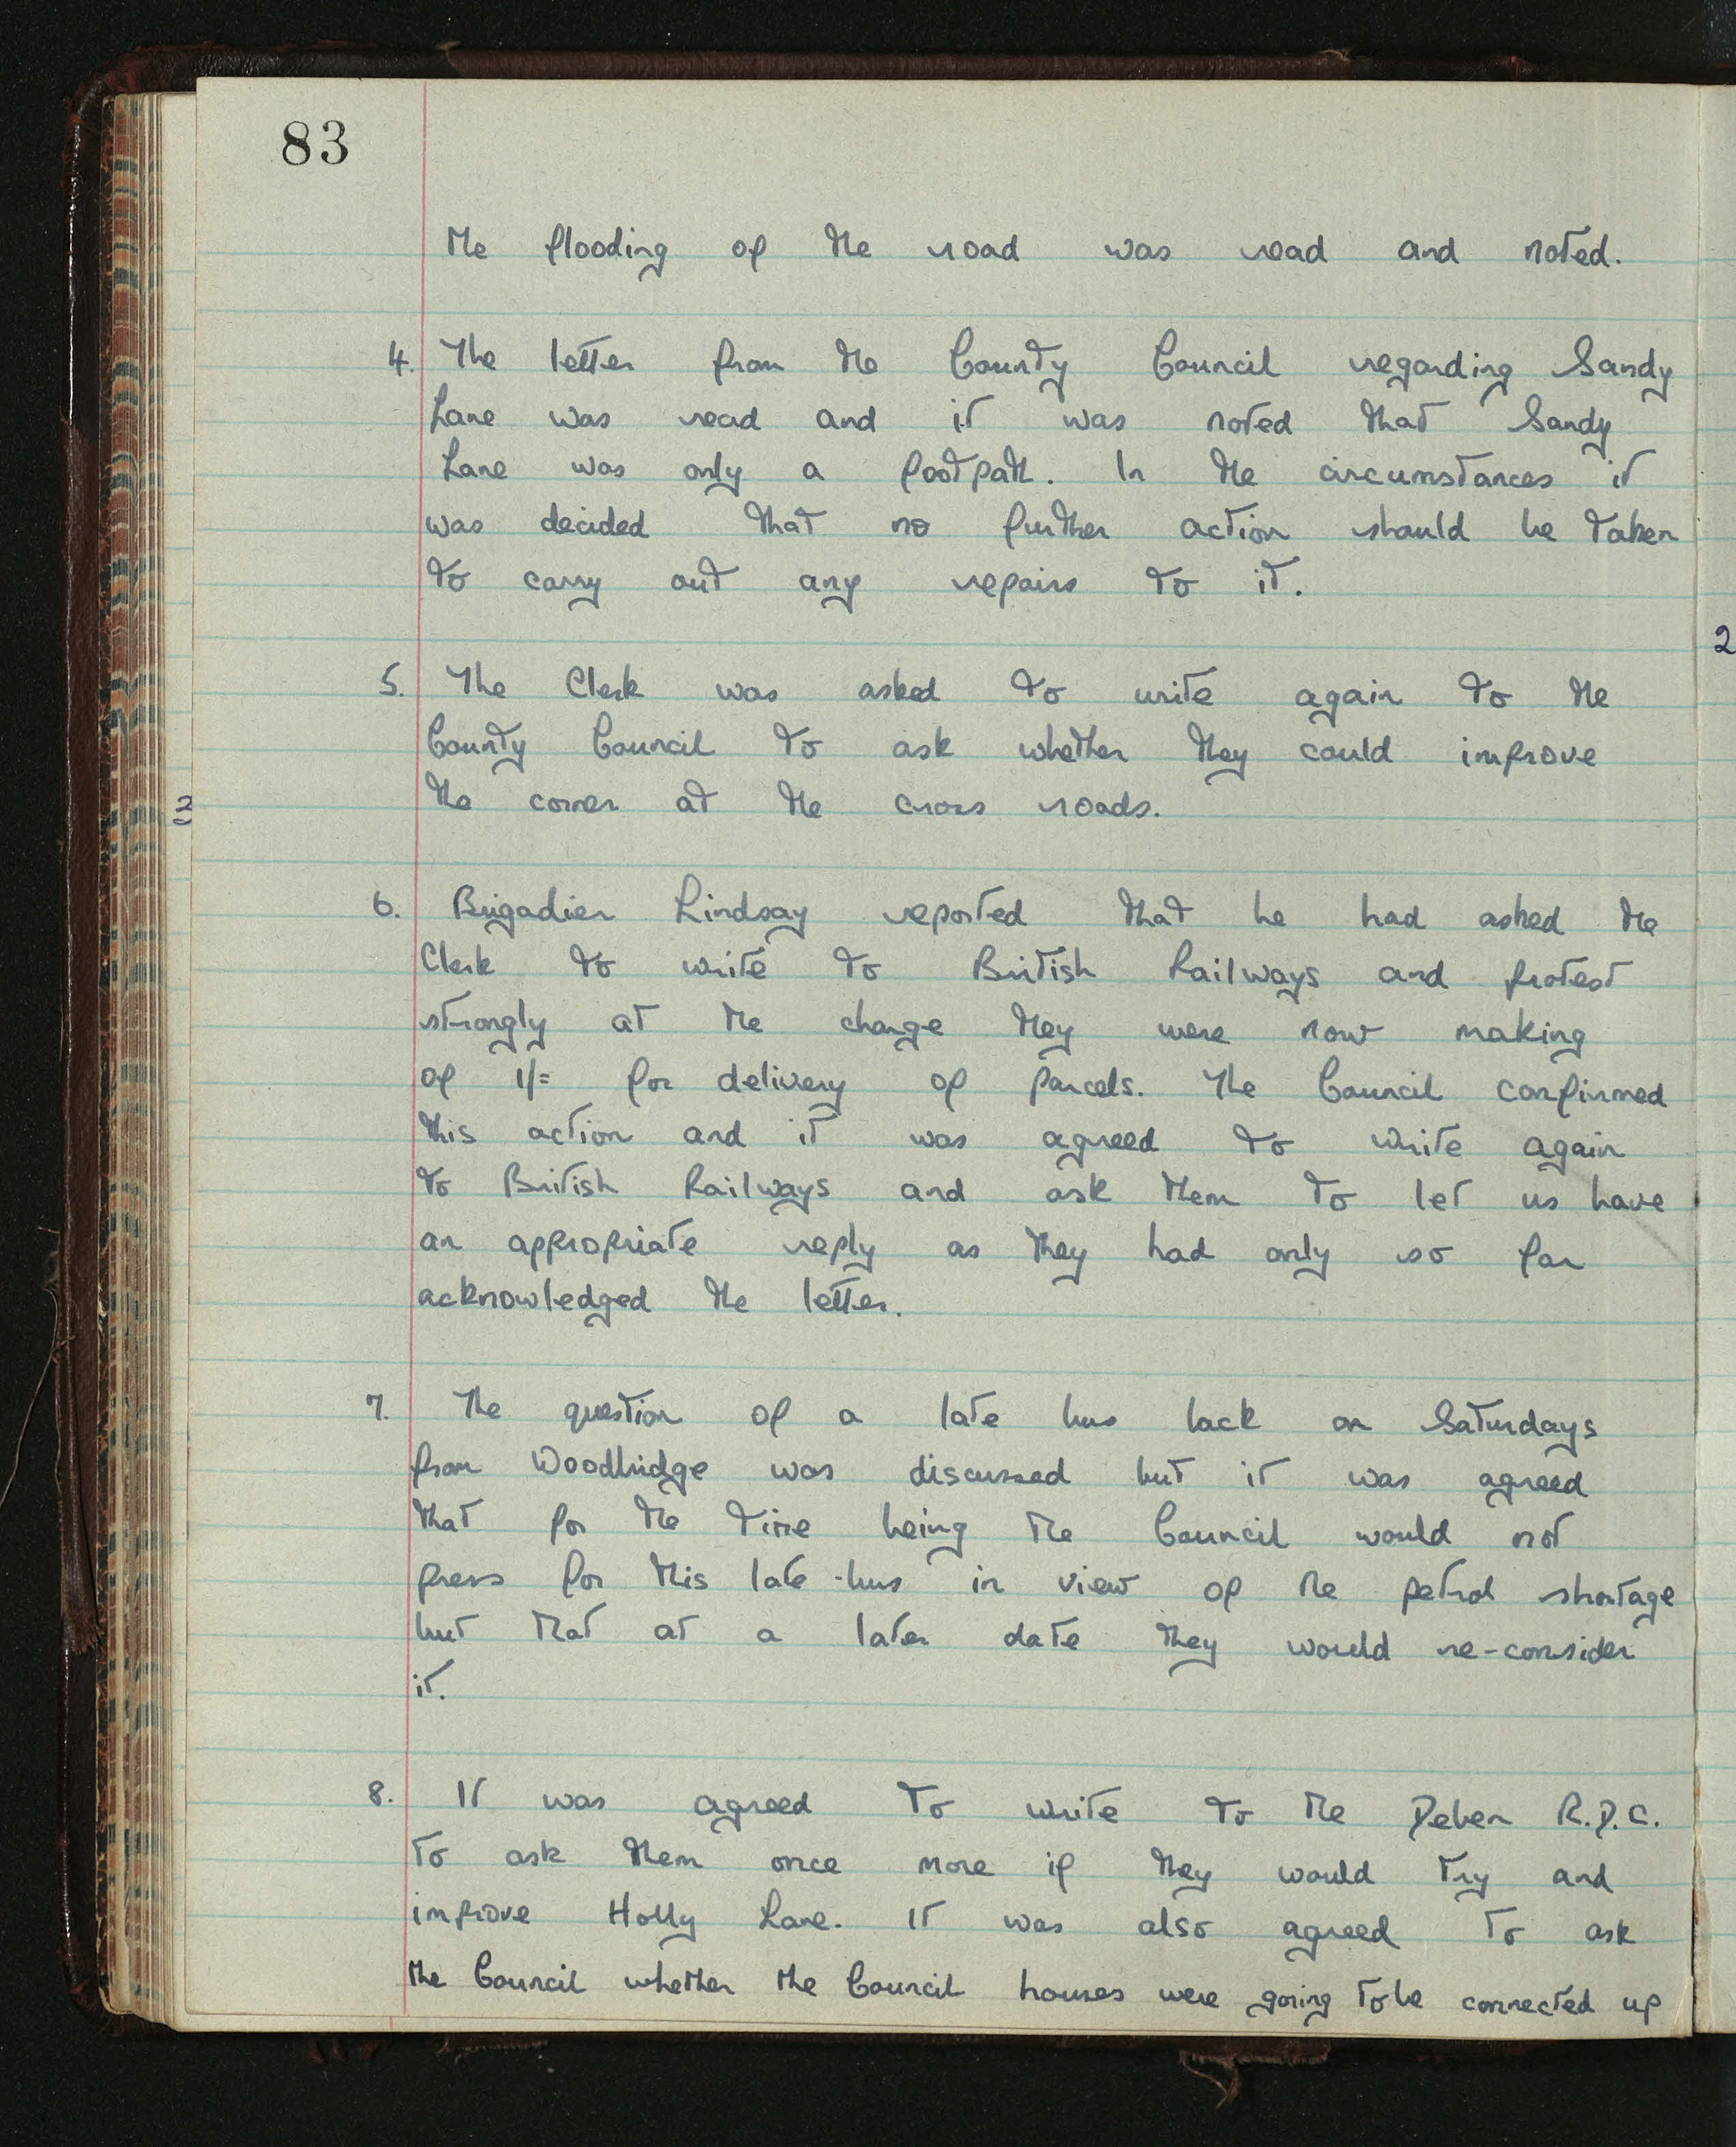 83
the flooding of the road was read and noted.
4. The letter from the County Council regarding Sandy
Lane was read and it was noted that Sandy
Lane was only a footpath. In the circumstances it
was decided that no further action should be taken
to carry out any repairs to it.
5. The Clerk was asked to write again to the
County Council to ask whether they could improve
the corner at the cross roads.
6. Brigadier Lindsay reported that he had asked the
Clerk to write to British Railways and protest
strongly at the charge they were now making
of 1/= for delivery of parcels. The Council confirmed
this action and it was agreed to write again
to British Railways and ask them to let us have
an appropriate reply as they had only so far
acknowledged the letter.
7. The question of a late bus back on Saturdays
from Woodbridge was discussed but it was agreed
that for the time being the Council would not
press for this late bus in view of the petrol shortage
but that at a later date they would re-consider
it.
8. It was agreed to write to the Deben R.D.C.
to ask them once more if they would try and
improve Holly Lane. It was also agreed to ask
the Council whether the Council houses were going to be connected up
2
2